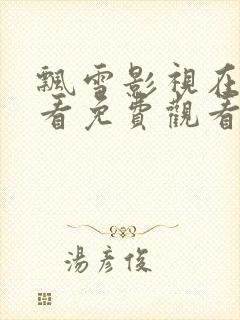 飄雪影視在
看免費觀看
湯彥俊